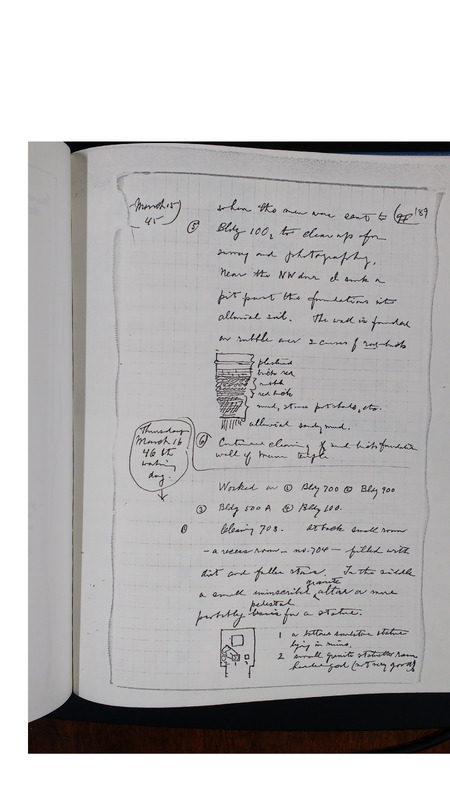 March 15
45
189
when the men were sent to
⑤ Bldg 100, to clear up for
survey and photography.
Near the NW door I sunk a
pit past the foundations into
alluvial soil. The wall is founded
on rubble over 2 courses of red-bricks
plastered
bricks red
rubble
red bricks
mud, stones potsherds, etc.
alluvial sandy mud.
Thursday
March 16
46th
working
day.
⑥ Continue clearing of mud brick foundation
wall of temple
Worked on ① Bldg 700 ② Bldg 900
③ Bldg 500 A ④ Bldg 100.
① Clearing 703. At back small room
- a recess room - no. 704 - filled with
dirt and fallen stones. In the middle
a small uninscribed granite altar or more
probably pedestal basis for a statue.
1 a statue
lying in ruins.
2 small granite statuette
(not very good)